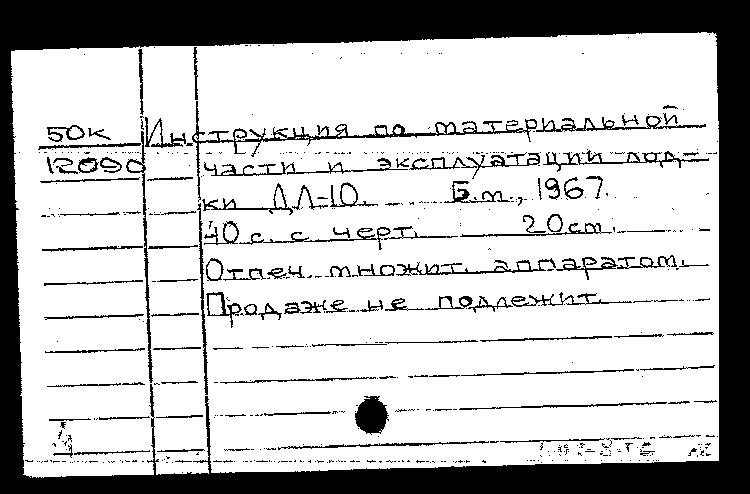 50к Инструкция по материальной
12090 части и эксплуатации лод-
ки ДЛ-10. Б.м., 1967.
40 с. с черт. 20 см.
Отпеч. множит. аппаратом.
Продаже не подлежит.